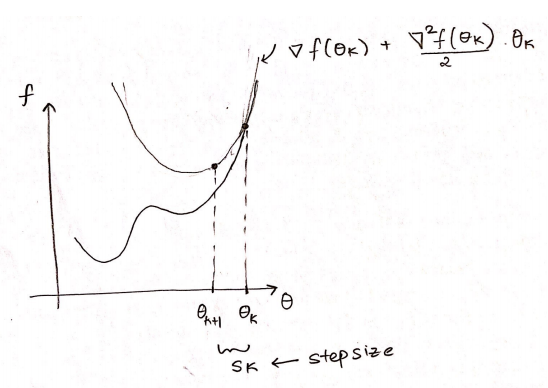 ∇f(θₖ) + ∇²f(θₖ)/2 · θₖ
f
θₖ₊₁ θₖ θ
sₖ ← stepsize